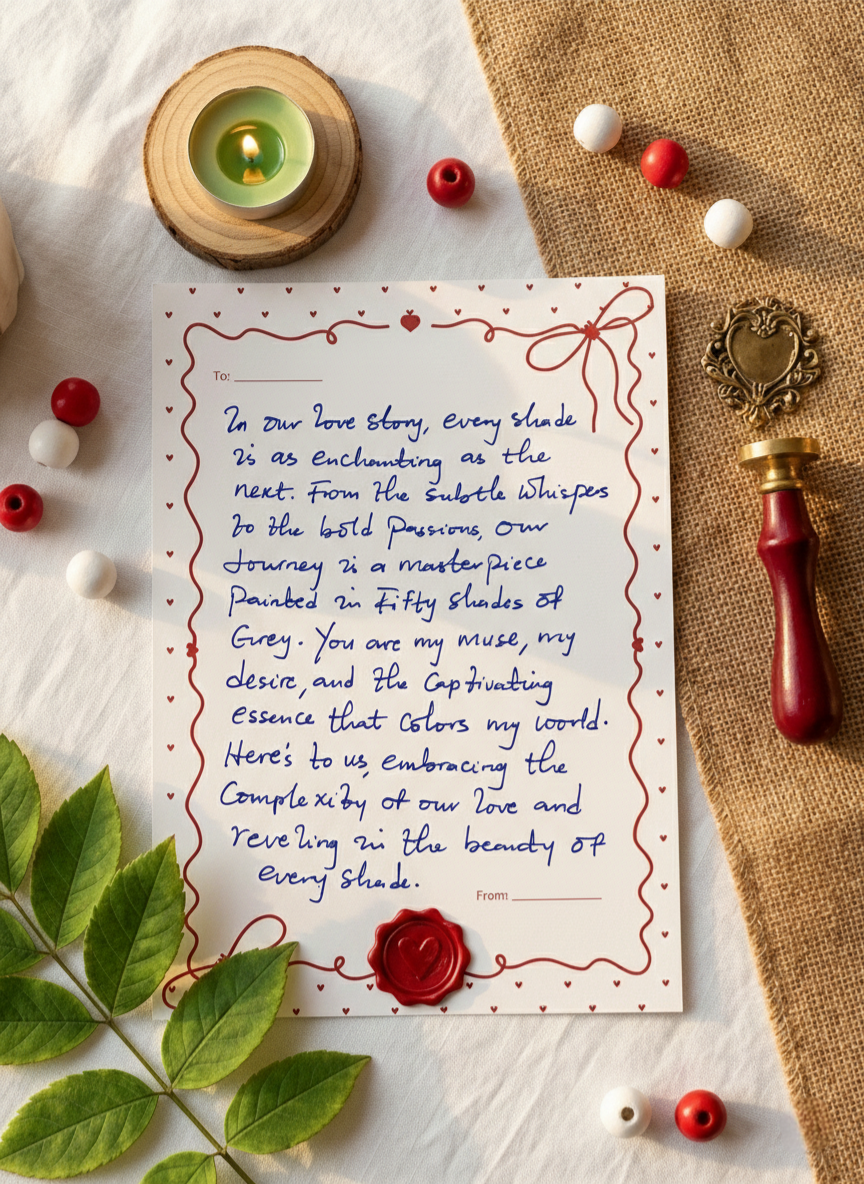 To:
In our love story, every shade
is as enchanting as the
next. From the subtle whispers
to the bold Passions, our
Journey is a masterpiece
Painted in Fifty shades of
Grey. You are my muse, my
desire, and the Captivating
essence that Colors my world.
Here's to us, embracing the
Complexity of our love and
reveling in the beauty of
every shade.
From: